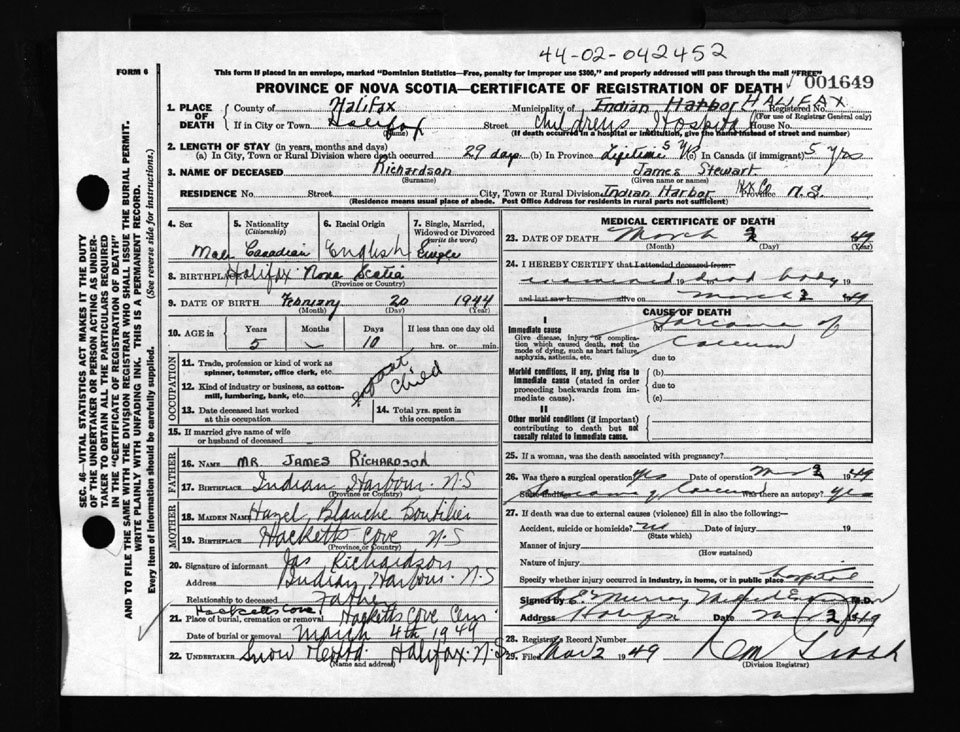 44-02-042452
FORM 6
This form if placed in an envelope, marked "Dominion Statistics—Free, penalty for improper use $300," and properly addressed will pass through the mail "FREE"
PROVINCE OF NOVA SCOTIA—CERTIFICATE OF REGISTRATION OF DEATH 001649
1. PLACE OF DEATH { County of Halifax Municipality of Indian Harbor HALIFAX Registered No.
(For use of Registrar General only)
If in City or Town Halifax Street Childrens Hospital House No.
(If death occurred in a hospital or institution, give the name instead of street and number)
2. LENGTH OF STAY (in years, months and days)
(a) In City, Town or Rural Division where death occurred 29 days (b) In Province Lifetime 5 yrs (c) In Canada (if immigrant) 5 yrs
3. NAME OF DECEASED Richardson James Stewart
(Surname) (Given name or names)
RESIDENCE No. Street City, Town or Rural Division Indian Harbor Hx Co Province N.S.
(Residence means usual place of abode. Post Office Address for residents in rural parts not sufficient)
4. Sex 5. Nationality (Citizenship) 6. Racial Origin 7. Single, Married, Widowed or Divorced (write the word)
Male Canadian English Single
8. BIRTHPLACE Halifax Nova Scotia
(Province or Country)
9. DATE OF BIRTH February 20 1944
(Month) (Day) (Year)
10. AGE in { Years Months Days If less than one day old
5 — 10 hrs. or min.
OCCUPATION
11. Trade, profession or kind of work as spinner, teamster, office clerk, etc.
12. Kind of industry or business, as cotton-mill, lumbering, bank, etc.
Child
13. Date deceased last worked at this occupation
14. Total yrs. spent in this occupation
15. If married give name of wife or husband of deceased
FATHER
16. NAME MR. JAMES RICHARDSON
17. BIRTHPLACE Indian Harbour. N.S
(Province or Country)
MOTHER
18. MAIDEN NAME Hazel Blanche Boutilier
19. BIRTHPLACE Hacketts Cove N.S
(Province or Country)
20. Signature of informant Jas Richardson
Address Indian Harbour. N.S
Relationship to deceased Father
Hacketts Cove
21. Place of burial, cremation or removal Hacketts Cove Cem
Date of burial or removal March 4th 1949
22. UNDERTAKER Snow Halifax. N.S.
(Name and address)
MEDICAL CERTIFICATE OF DEATH
23. DATE OF DEATH March 2 1949
(Month) (Day) (Year)
24. I HEREBY CERTIFY that I attended deceased from:
examined 19 dead body 19
and last saw h alive on March 2 1949
CAUSE OF DEATH
I
Immediate cause (a) Sarcoma of
Give disease, injury or complication which caused death, not the mode of dying, such as heart failure, asphyxia, asthenia, etc.
Caecum
due to
Morbid conditions, if any, giving rise to immediate cause (stated in order proceeding backwards from immediate cause).
(b)
due to
(c)
II
Other morbid conditions (if important) contributing to death but not causally related to immediate cause.
25. If a woman, was the death associated with pregnancy?
26. Was there a surgical operation? Yes Date of operation Mar 2 1949
State findings Sarcoma of Caecum Was there an autopsy? Yes
27. If death was due to external causes (violence) fill in also the following:—
Accident, suicide or homicide? no Date of injury 19
(State which)
Manner of injury
(How sustained)
Nature of injury
Specify whether injury occurred in industry, in home, or in public place hospital
Signed by E. Murray Medical Examiner M.D.
Address Halifax Date Mar 2 1949
28. Registrar's Record Number
29. Filed Mar 2 1949
(Division Registrar)
SEC. 46—VITAL STATISTICS ACT MAKES IT THE DUTY
OF THE UNDERTAKER OR PERSON ACTING AS UNDER-
TAKER TO OBTAIN ALL THE PARTICULARS REQUIRED
IN THE "CERTIFICATE OF REGISTRATION OF DEATH"
AND TO FILE THE SAME WITH THE DIVISION REGISTRAR WHO SHALL ISSUE THE BURIAL PERMIT.
WRITE PLAINLY WITH UNFADING INK. THIS IS A PERMANENT RECORD.
Every item of information should be carefully supplied. (See reverse side for instructions.)